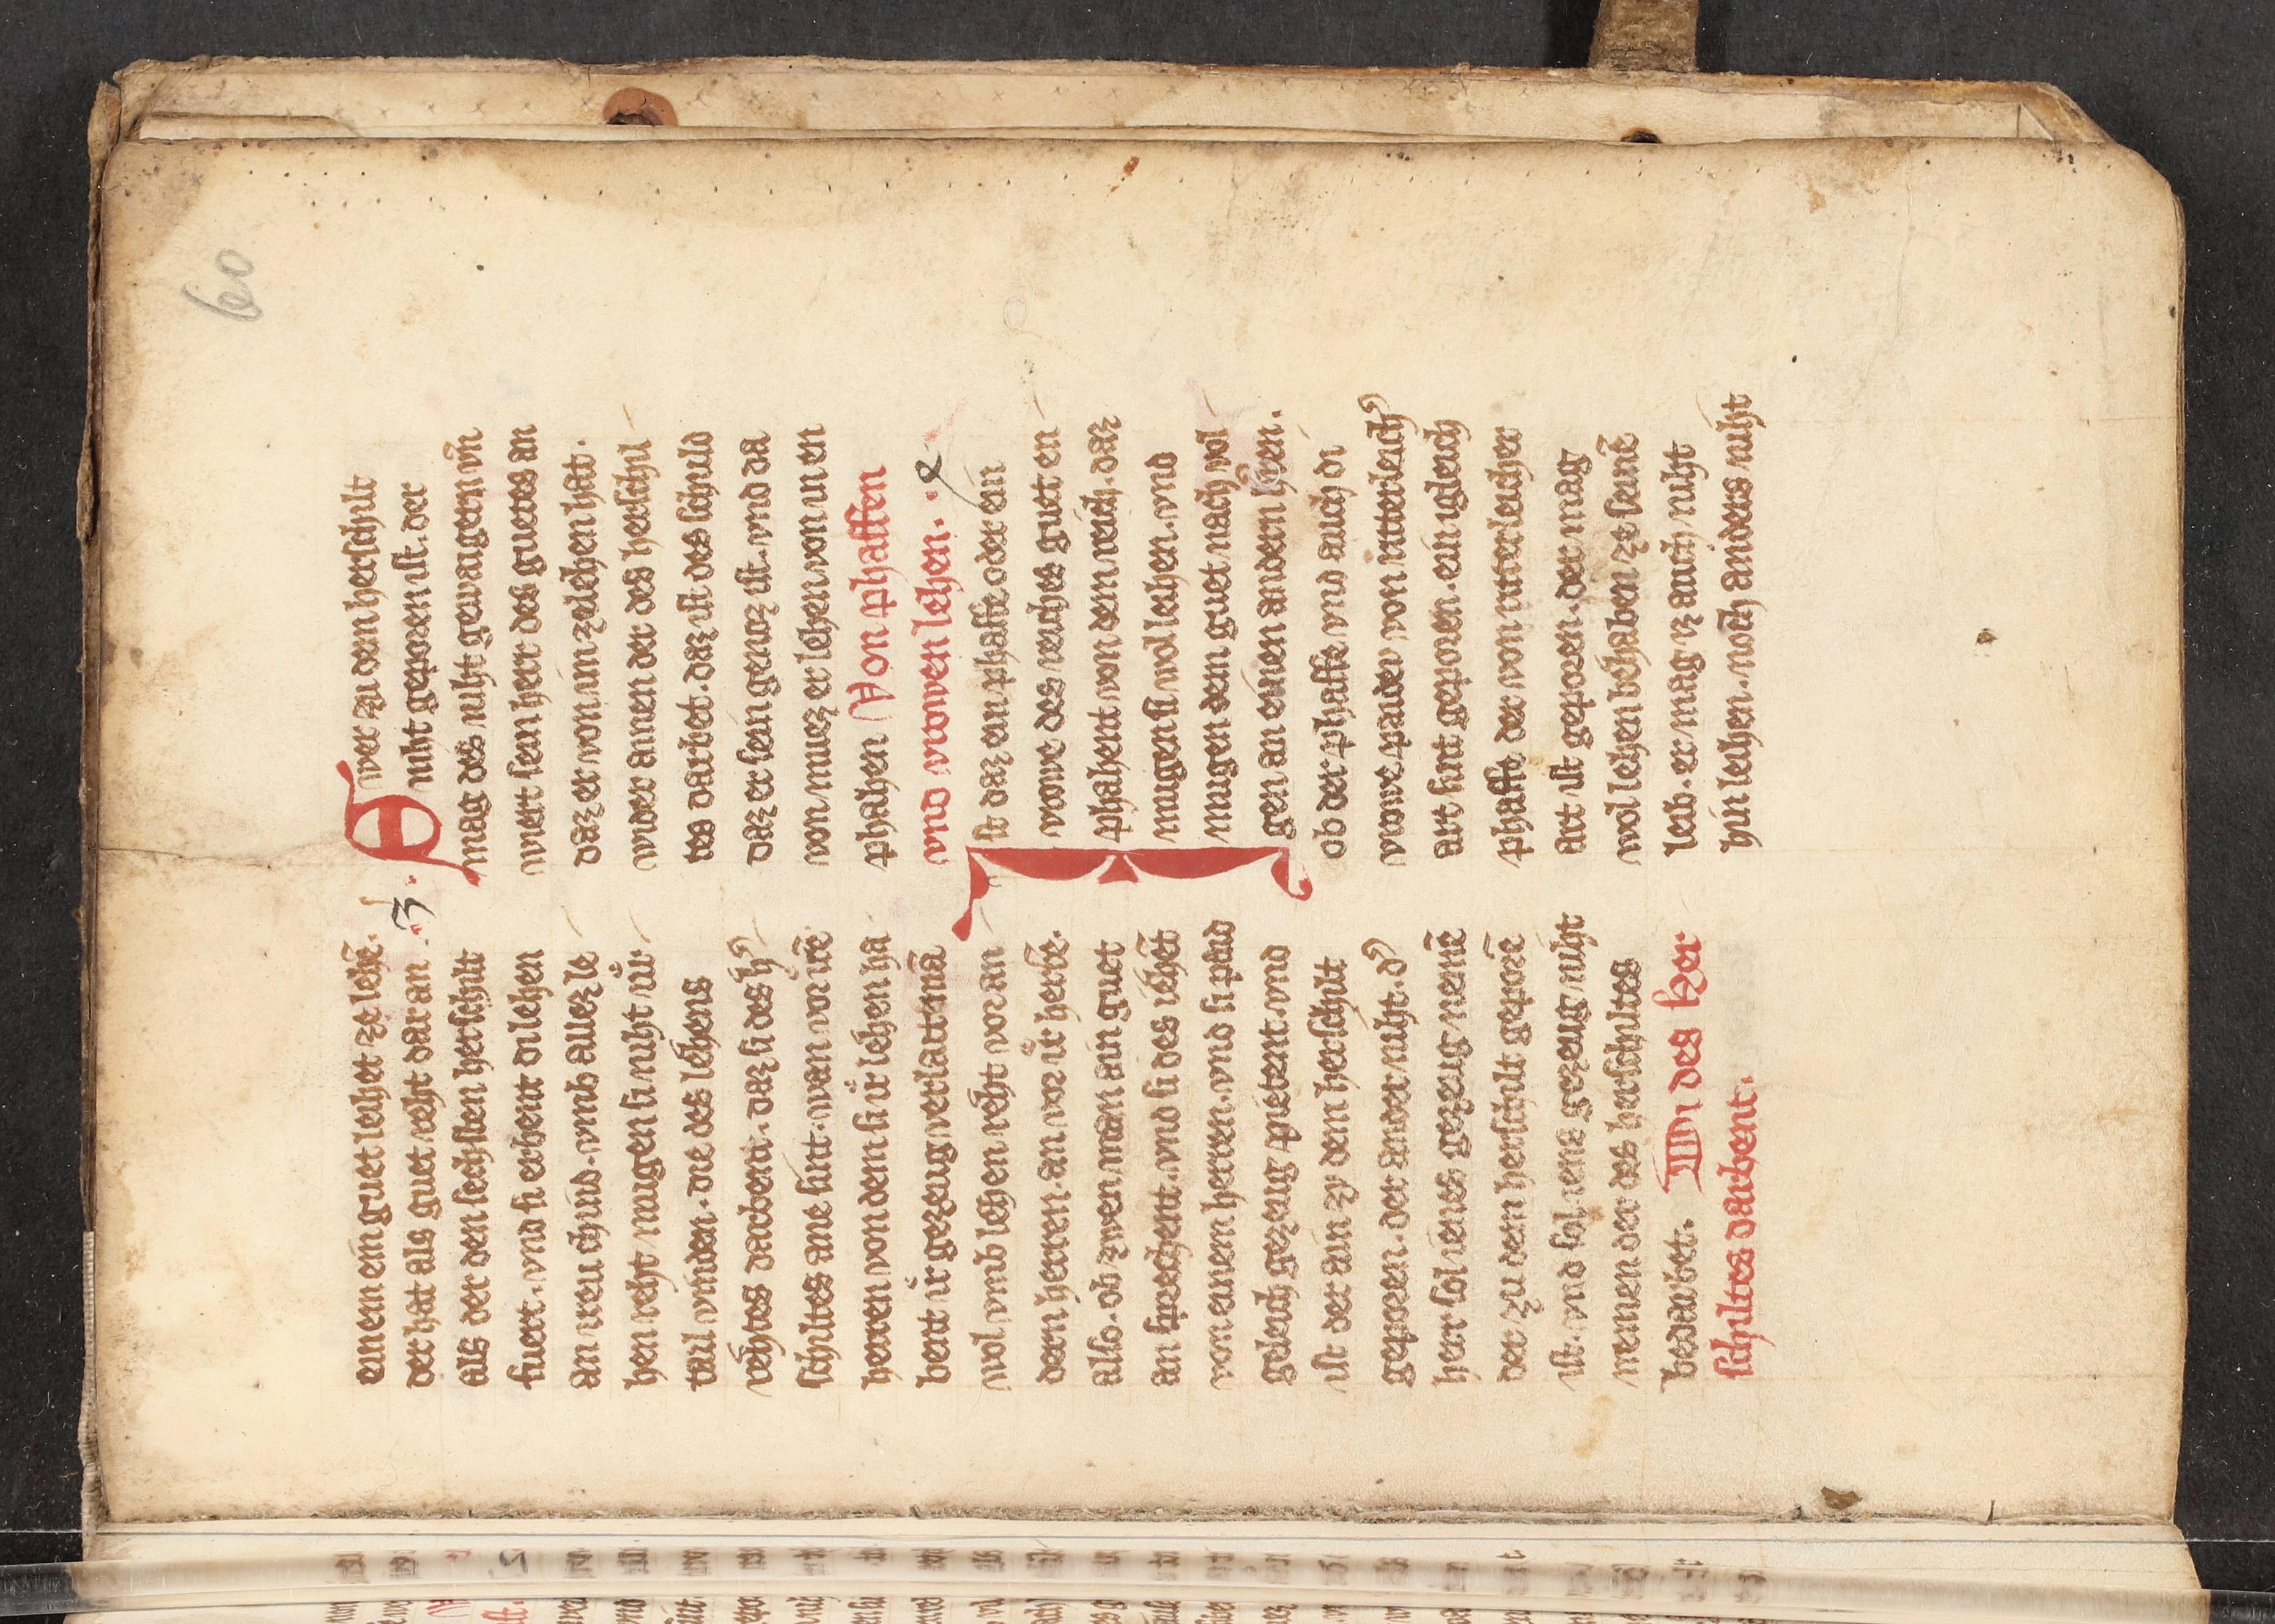 60
einem ein guet leihet ze lehē.
der hat als guet reht dar an
als der den sechsten herschilt
fuert. vnd si erbent di lehen
an ireu chind. vmb allez le
hen reht mugen si niht ůr
tail vinden. die des lehens
rehtes darbent. daz si des h᾽
schiltes ane sint. wan vor irē
herren von dem si ůr lehen ha
bent ůr gezeug verlatt mā
wol vmb lehen reht vor an
dern herren. an vor ůr herrē.
also. ob zwen man ain guet
an sprechent. vnd si des iehēt
von einem herren. vnd si paid
geleich gezeug pietent. vnd
ist der ain zv dem herschilt
geporen. der ander niht. d᾽
herr sol ienes gezeug nemē
der zu dem herschilt geporē
ist. vnd sol iens gezeug niht
nemen der des herschiltes
bedarbet. Di des her
schiltes darbent.
3
Swer zu den herschilt
niht geporen ist. der
mag des niht gewaigern vn̄
wert sein herr des guetes an
daz er von im ze lehen hat.
wider ainen der des herschil
tes darbet. daz ist des schuld
daz er sein genoz ist. vnd da
von muez er lehen von im en
phahen Von phaffen
vnd vrowen lehen.
Ist daz ein phaffe oder ein
vrowe des reiches guet en
phahent von dem reich. daz
mugen si wol leihen. vnd
mugen dem guet nach vol
gen an einen andern h᾽ren.
ob der phaffe vnd auch di
vrowe paider von ritterleich᾽
art sint geporen. ein igleich
phaffe der von ritterleicher
art ist geporen. der mag
wol lehen behaben ze seinē
leib. er mag iz auch niht
hin leihen. noch anders niht